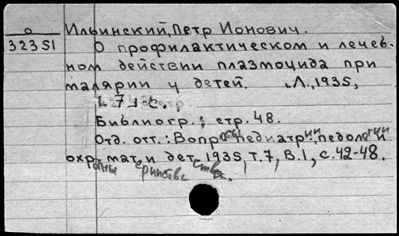 Ильинский, Петр Ионович.
32351
О профилактическом и лечеб-
ном действии плазмоцида при
малярии у детей. Л., 1935,
Библиогр.; стр. 48.
Отд. отт.: Вопросы педиатрии, педологии
охраны мат. и дет. 1935, т. 7, В. 1, с. 42-48.